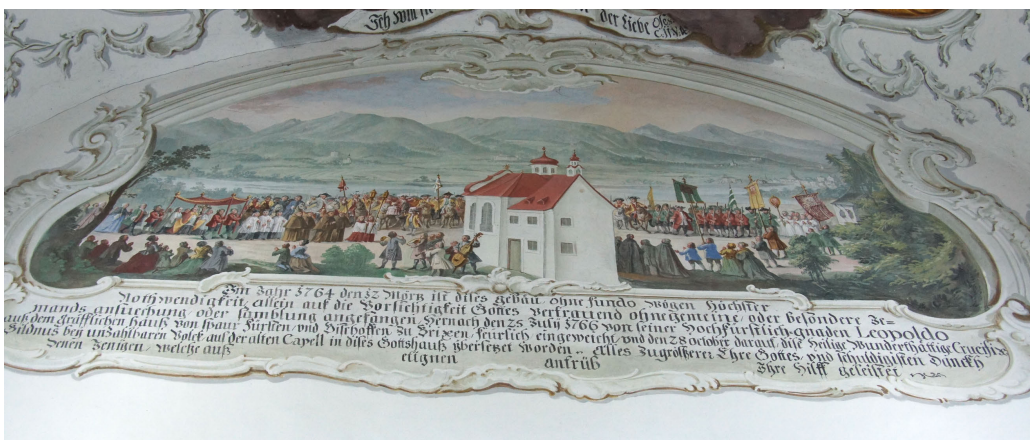 Ich will sie
der Liebe Osea
C. 11. V. 4.
Im Jahr 1764 den 12 März ist dises gebäu ohne fundo wögen Höchster
Nothwendigkeit allein auf die Vorsichtigkeit Gottes vertrauend ohne gemeine, oder besondere Ie-
mands ansuechung, oder samblung angefangen, Hernach den 25 July 1766 von seiner Hochfürstlich-gnaden Leopoldo
aus dem gräfflichen Hauß von Spaur Fürsten, und Bischoffen zu Brixen, feürlich eingeweicht, und den 28 october darauf dise Heilig Wunderthättige Crucifix
Bildnus bey unzahlbaren Volck auf der alten Capell in dises Gottshauß übersetzt worden.. Alles zu grösserer Ehre Gottes, und schuldigisten Danckh
denen Jenigen, welche auß eignen antrüb Ihre Hilff geleistet